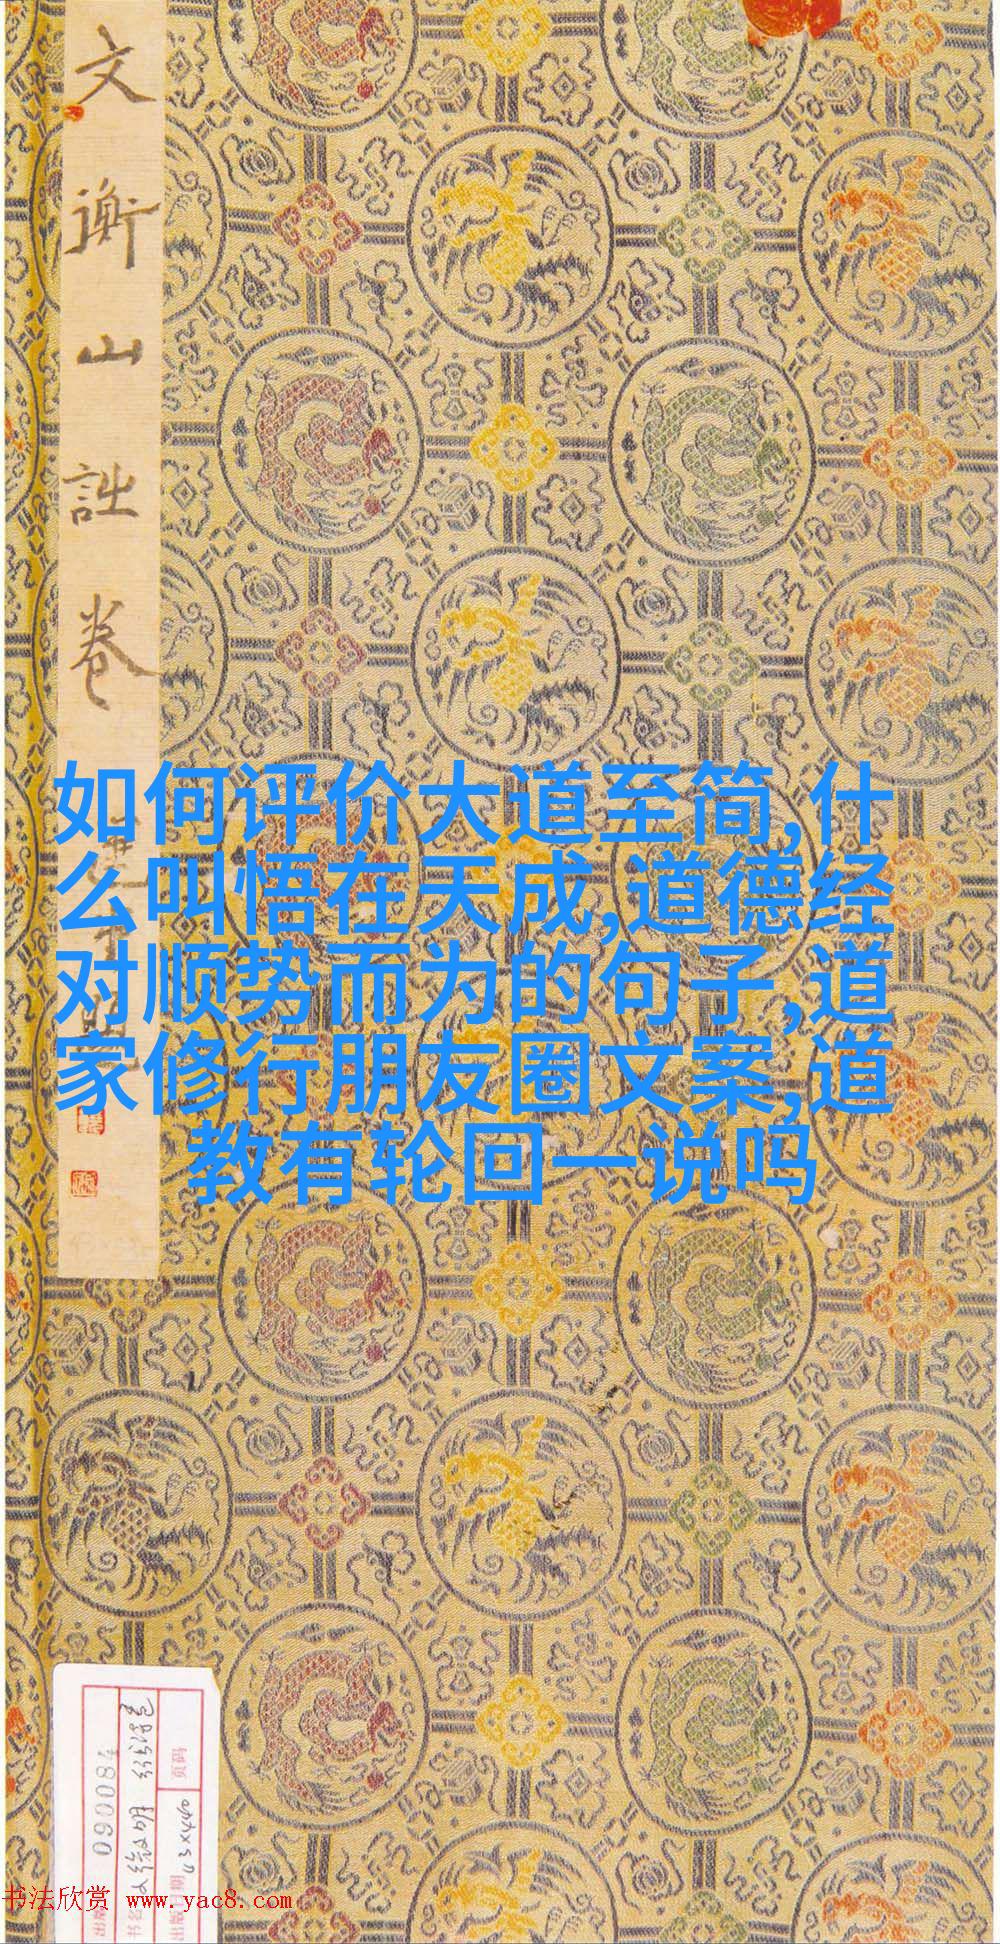 文衡山詩卷
如何评价大道至简,什
么叫悟在天成,道德经
对顺势而为的句子,道
家修行朋友圈文案,道
教有轮回一说吗
090084
页码
书法欣赏 www.yac8.com